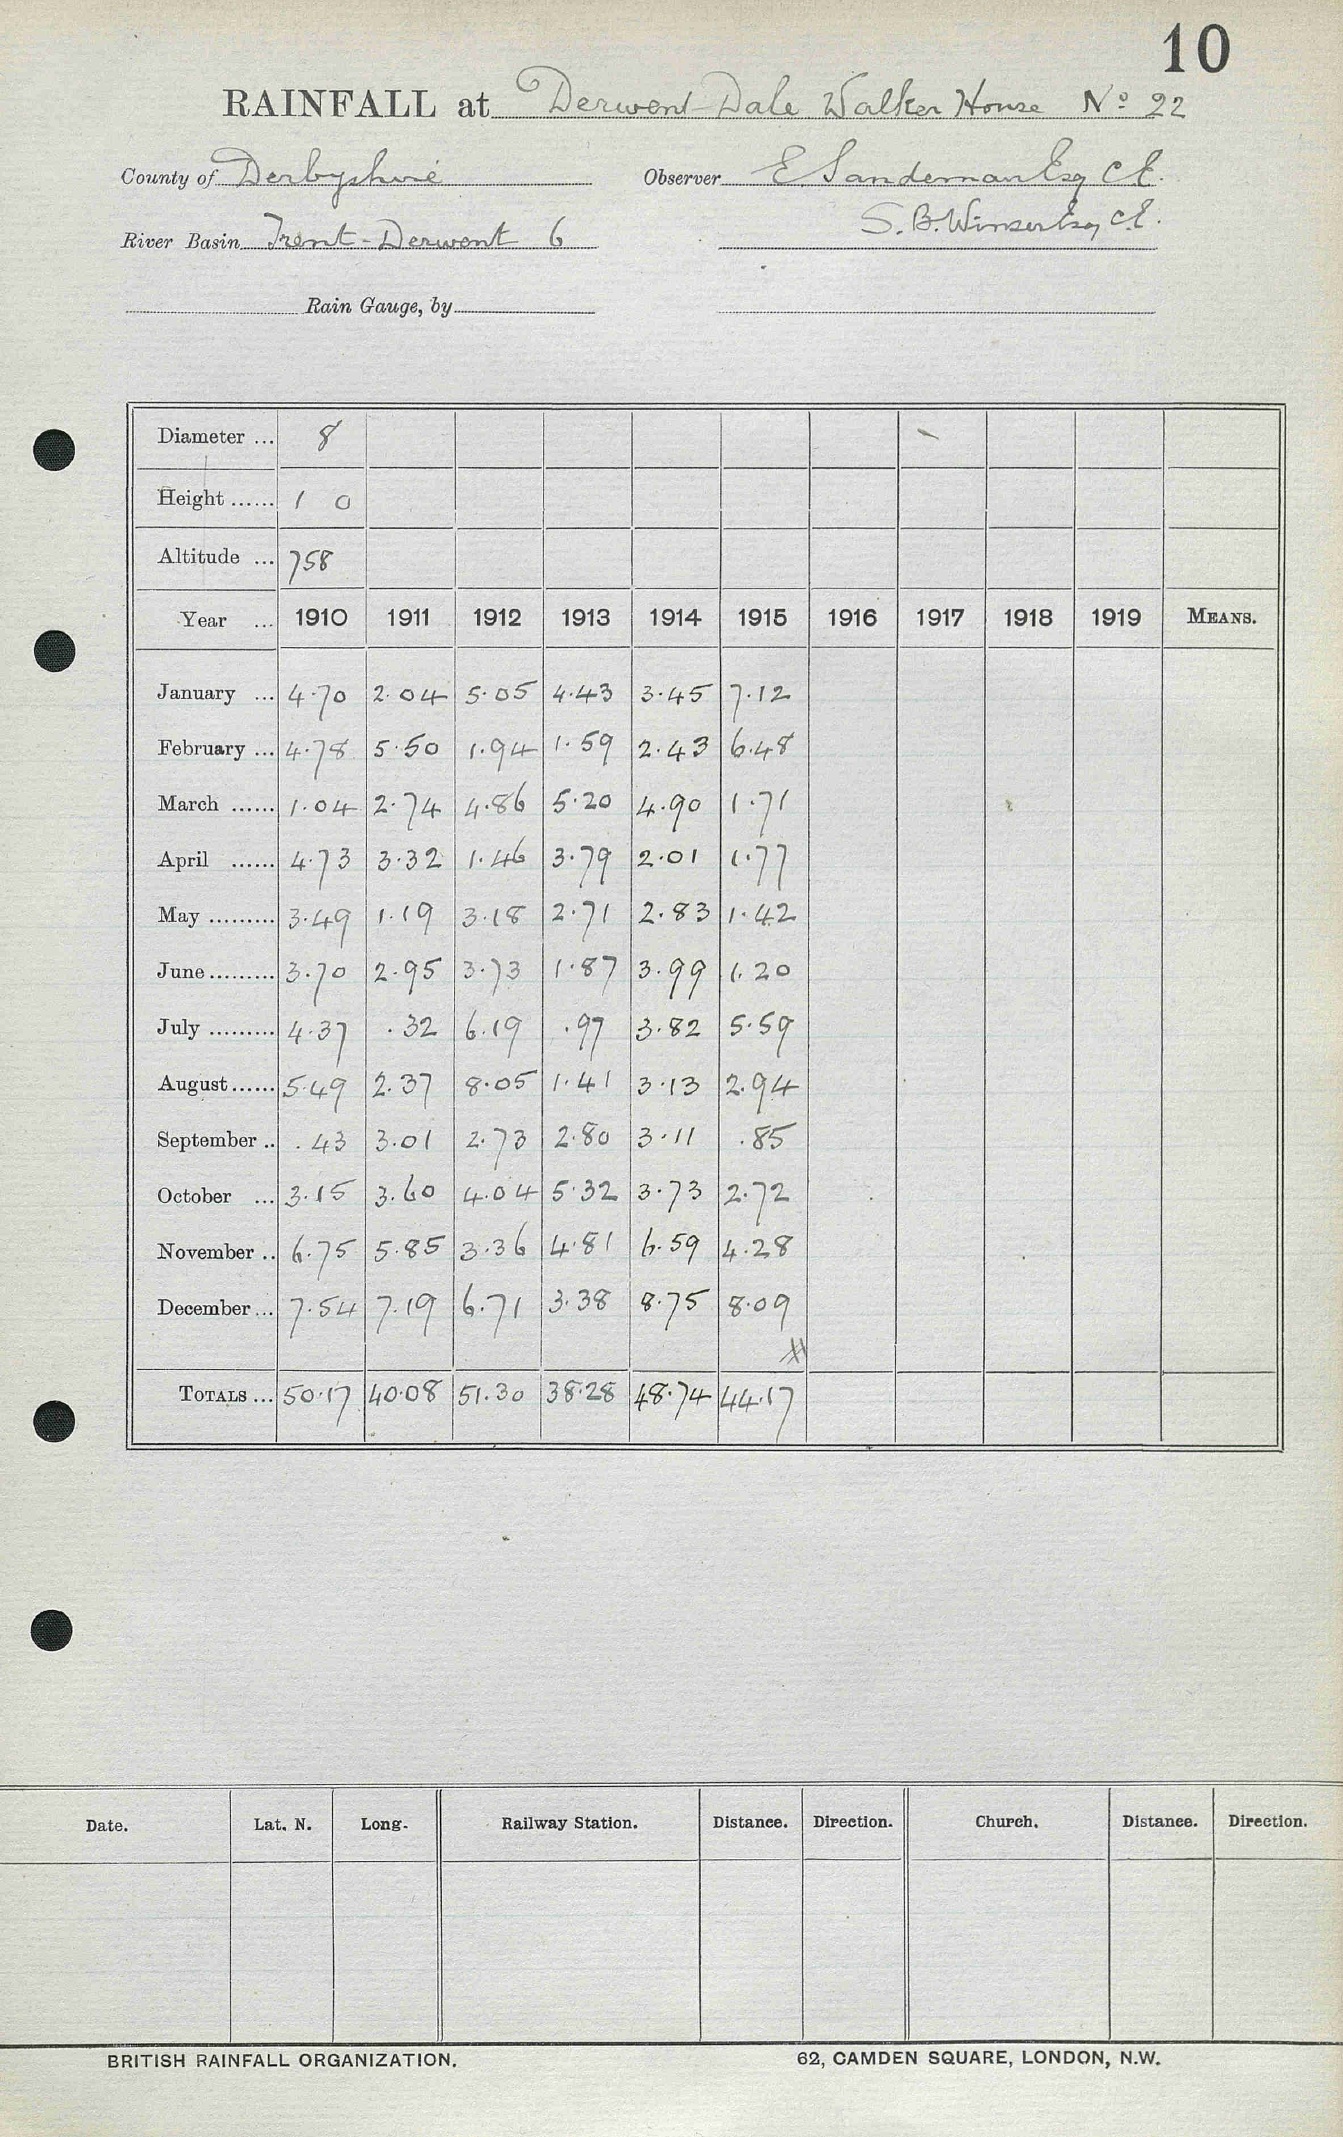 10
RAINFALL at Derwent Dale Walker House No 22
County of Derbyshire Observer E. Sandeman Esq C.E.
S. B. Winser Esq C.E.
River Basin Trent-Derwent 6
Rain Gauge, by
Diameter ... 8
Height ...... 1 0
Altitude ... 758
Year ... 1910 1911 1912 1913 1914 1915 1916 1917 1918 1919 MEANS.
January ... 4.70 2.04 5.05 4.43 3.45 7.12
February ... 4.78 5.50 1.94 1.59 2.43 6.48
March ...... 1.04 2.74 4.86 5.20 4.90 1.71
April ...... 4.73 3.32 1.46 3.79 2.01 1.77
May ......... 3.49 1.19 3.18 2.71 2.83 1.42
June ......... 3.70 2.95 3.73 1.87 3.99 1.20
July ......... 4.37 .32 6.19 .97 3.82 5.59
August ...... 5.49 2.37 8.05 1.41 3.13 2.94
September .. .43 3.01 2.73 2.80 3.11 .85
October ... 3.15 3.60 4.04 5.32 3.73 2.72
November .. 6.75 5.85 3.36 4.81 6.59 4.28
December ... 7.54 7.19 6.71 3.38 8.75 8.09
TOTALS ... 50.17 40.08 51.30 38.28 48.74 44.17
Date. Lat. N. Long. Railway Station. Distance. Direction. Church. Distance. Direction.
BRITISH RAINFALL ORGANIZATION. 62, CAMDEN SQUARE, LONDON, N.W.